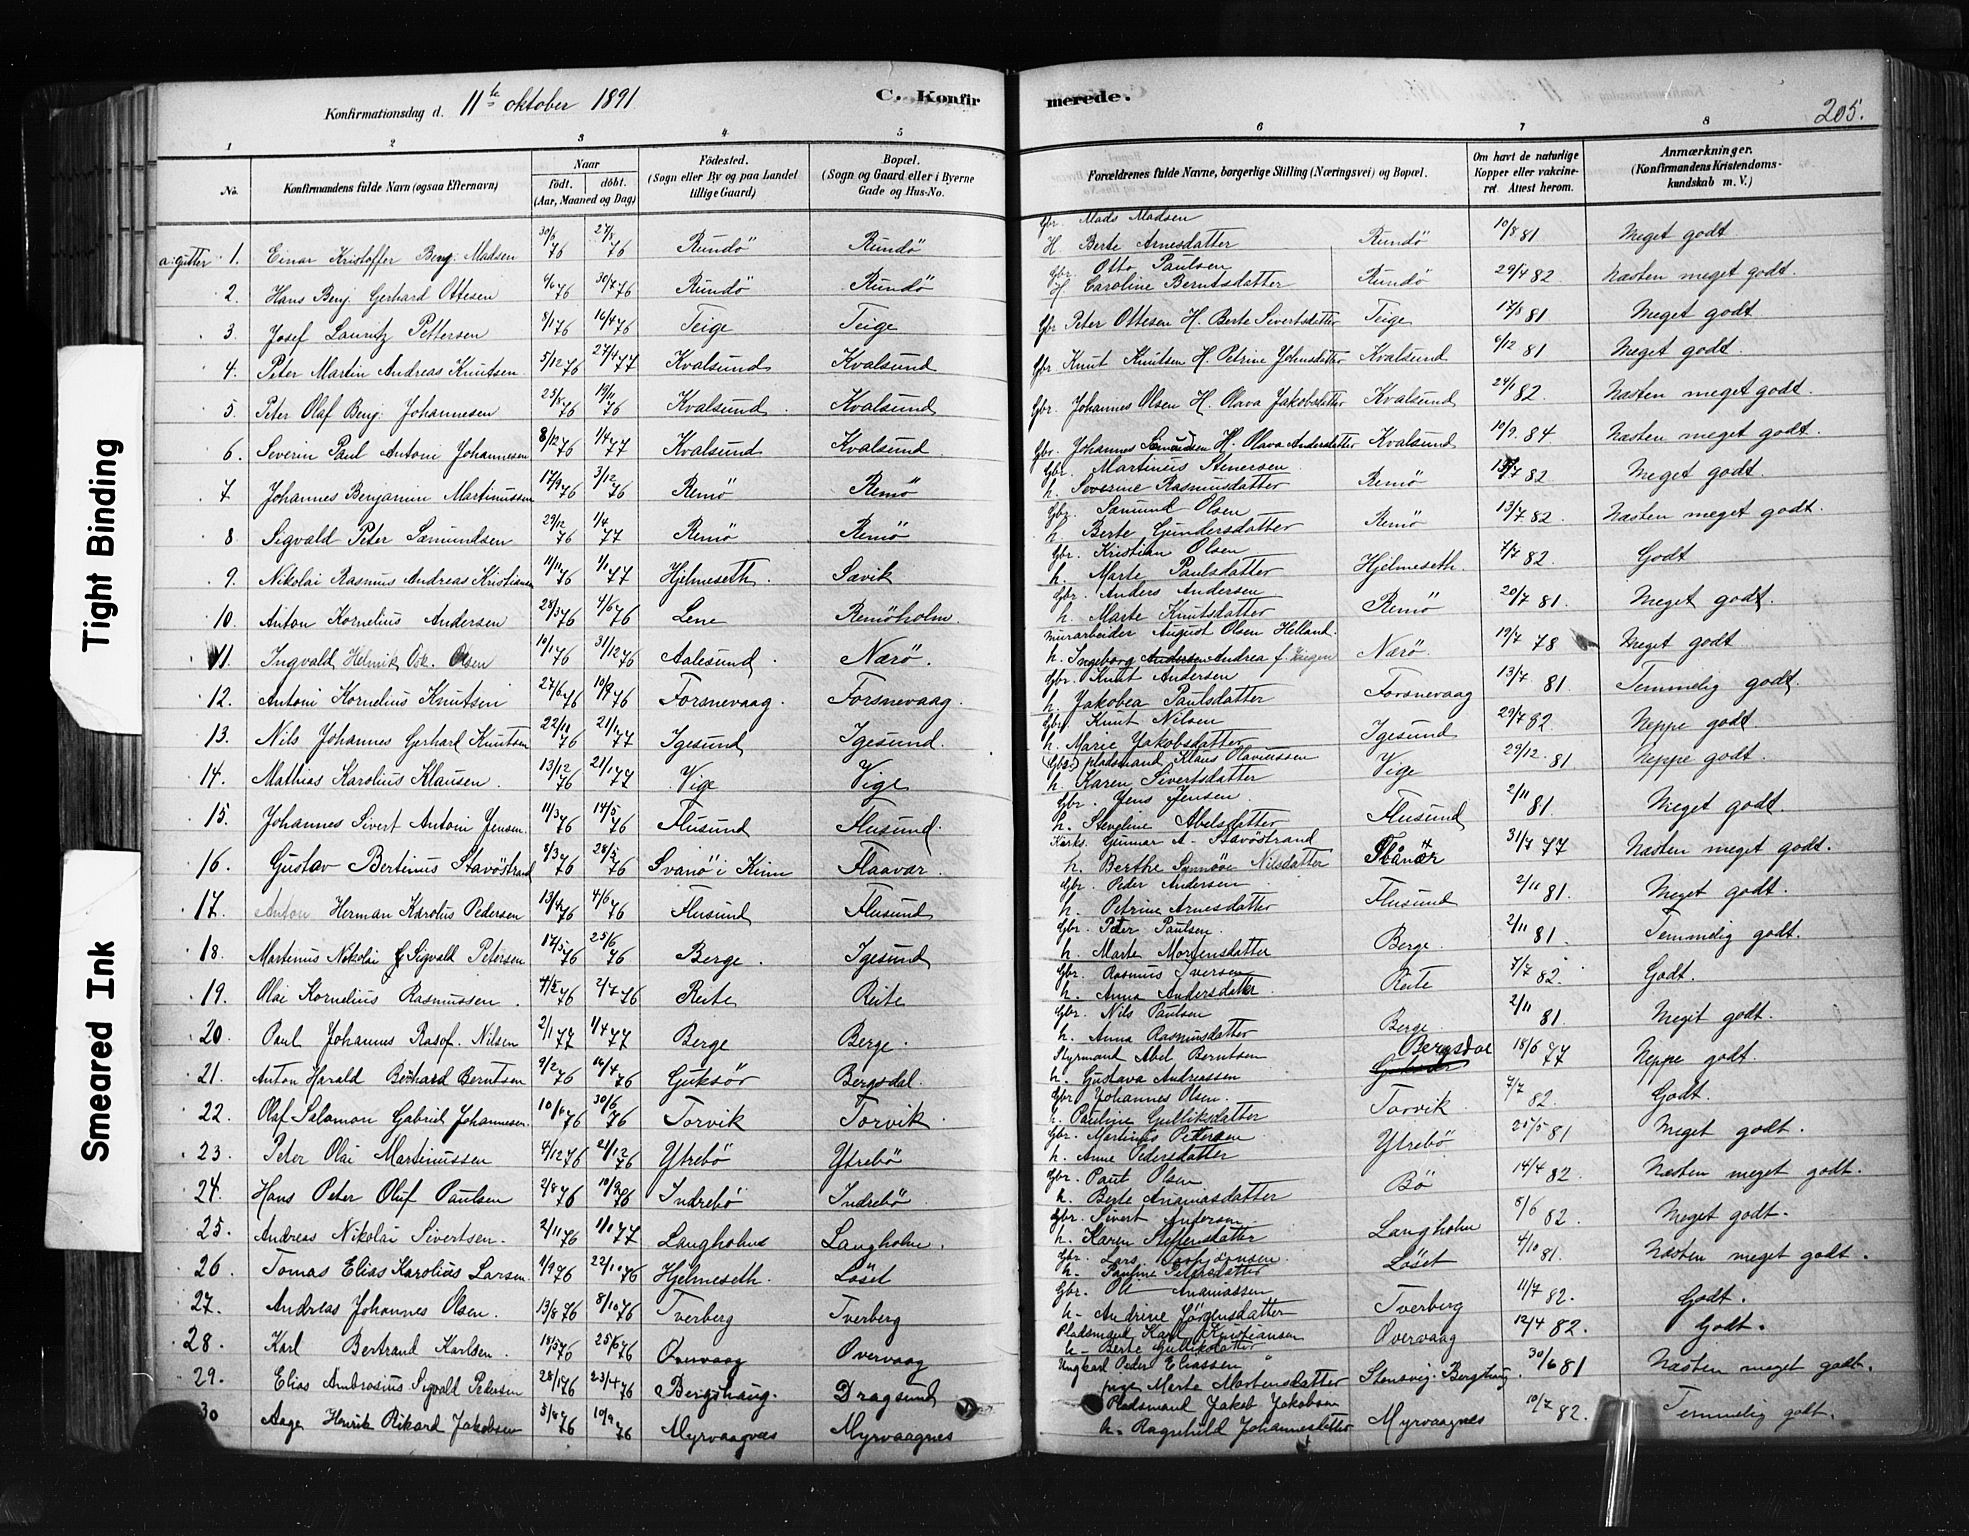 Konfirmationsdag d. 11te oktober 1891
C. Konfir
merede.
205.
1 2 3 4 5 6 7 8
No.
Konfirmandens fulde Navn (ogsaa Efternavn)
Naar
født. døbt.
(Aar, Maaned og Dag)
Fødested.
(Sogn eller By og paa Landet
tillige Gaard)
Bopæl.
(Sogn og Gaard eller i Byerne
Gade og Hus-No.
Forældrenes fulde Navne, borgerlige Stilling (Næringsvei) og Bopæl.
Om havt de naturlige
Kopper eller vakcine-
ret. Attest herom.
Anmærkninger.
(Konfirmandens Kristendoms-
kundskab m. V.)
a. gutter 1. Einar Kristoffer Benj. Madsen 30/6 76 27/8 76 Rundö Rundö Gbr. Mads Madsen H Berte Arnesdatter Rundö 10/8 81 Meget godt
2. Hans Benj. Gerhard Ottesen 4/6 76 30/7 76 Rundö Rundö Gbr. Otto Paulsen H. Caroline Berntsdatter Rundö 29/4 82 Næsten meget godt.
3 Josef Lauritz Pettersen 8/1 76 16/4 76 Teige Teige Gbr Peter Ottesen H. Berte Sivertsdatter Teige 17/8 81 Meget godt
4. Peter Martin Andreas Knutsen 5/12 76 27/4 77 Kvalsund Kvalsund Gbr Knut Knutsen H. Petrine Johnsdatter Kvalsund 6/12 81 Meget godt.
5. Peter Olaf Benj. Johannesen 25/8 76 19/11 76 Kvalsund. Kvalsund Gbr. Johannes Olsen H. Olava Jakobsdatter Kvalsund 24/1 82. Næsten meget godt.
6. Severin Paul Antoni Johannesen 8/12 76 1/4 77 Kvalsund Kvalsund Gbr. Johannes H. Olava Andersdatter Kvalsund 10/9. 84 Næsten meget godt.
7. Johannes Benjamin Martinussen 17/9 76 3/12 76 Remö Remö Gbr. Martinus Stenersen h. Severine Rasmusdatter Remö 13/7 82 Meget godt.
8 Sigvald Peter Sæmundsen 29/12 76 1/4 77 Remö Remö Gbr. Sæmund Olsen h Berte Gundersdatter Remö 13/7 82. Næsten meget godt.
9. Nikolai Rasmus Andreas Kristiansen 11/11 76 1/1 77 Hjelmeseth. Sævik Gbr. Kristian Olsen h. Marte Paulsdatter Hjelmeseth. 7/7 82. Godt
10. Anton Kornelius Andersen 28/3 76 4/6 76 Lene Remöholm. Gbr. Anders Andersen h. Marte Knutsdatter Remö 20/7 81. Meget godt.
11. Ingvald Helmik Osk. Olsen 10/1 76 31/12 76 Aalesund. Nærö. Murarbeider August Olsen Helland. h. Ingeborg Andrea Nærö. 19/7 78 Meget godt
12. Antoni Kornelius Knutsen 27/6 76 10/9 76 Forsnevaag. Forsnevaag. Gbr. Knut Andersen h. Jakobea Paulsdatter Forsnevaag 13/7 81. Temmelig godt.
13. Nils Johannes Gerhard Knutsen 22/11 76 21/1 77 Igesund Igesund. Gbr. Knut Nilsen h. Marie Jakobsdatter Igesund 29/7 82 Neppe godt
14. Mathias Karolius Klausen. 13/12 76 21/1 77 Vige Vige (Gbr.) pladsmand Klaus Olaviussen h. Karen Sivertsdatter Vige 29/12. 81. Neppe godt.
15. Johannes Sivert Antoni Jensen. 11/3 76 14/5 76 Flusund Flusund. Gbr. Jens Jensen. h. Steveline Abelsdatter Flusund 2/11 81 Meget godt
16. Gustav Bertinus Stavöstrand 8/3 76 28/5 76 Svanö i Kinn Flaavær. Gunnar A. Stavöstrand h. Berthe Synnöve Nilsdatter 31/7 77 Næsten meget godt.
17. Anton Herman Karolus Pedersen 13/4 76 4/6 76 Flusund Flusund Gbr. Peder Andersen h. Petrine Arnesdatter Flusund 2/11 81. Meget godt.
18. Martinus Nikolai Sigvald Petersen 17/5 76 25/6 76 Berge. Igesund Gbr. Peter Paulsen. h. Marte Mortensdatter Berge. 2/11 81. Temmelig godt.
19. Olai Kornelius Rasmussen. 4/5 76 2/7 76 Reite Reite Gbr. Rasmus Iversen h. Anna Andersdatter Reite 7/7 82. Godt.
20 Paul Johannes Rasof. Nilsen 2/1 77 1/4 77 Berge Berge. Gbr. Nils Paulsen h. Anna Rasmusdatter Berge 2/11 81. Meget godt.
21. Anton Harald Bernhard Berntsen 9/2 76 16/4 76 Gjuksör Bergsdal. Styrmand Abel Berntsen h. Gustava Andreassen Bergsdal 18/6 77 Neppe godt.
22. Olaf Salamon Gabriel Johannesen. 10/4 76 30/6 76 Torvik Torvik. Gbr Johannes Olsen. h. Pauline Gulliksdatter Torvik 7/7 82. Godt.
23. Peter Olai Martinussen 4/12 76 21/12 76 Ytrebö Ytrebö Gbr. Martinus Pettersen h. Anne Pedersdatter Ytrebö. 25/5 81 Meget godt.
24. Hans Peter Oluf Paulsen 2/8 76 10/9 76 Indrebö Indrebö Gbr. Paul Olsen h. Berte Ananiasdatter Bö 14/4 82. Næsten meget godt.
25. Andreas Nikolai Sivertsen. 2/11 76 1/1 77 Langholm Langholm. Gbr. Sivert Andersen h. Karen Steffensdatter Langholm 5/6 82. Meget godt.
26. Tomas Elias Karolius Larsen. 1/9 76 22/10 76 Hjelmeseth. Löset Gbr. Lars Torbjörnsen h. Pauline Petersdatter Löset 4/10 81. Næsten meget godt.
27. Andreas Johannes Olsen. 13/8 76 8/10 76 Tverberg Tverberg Gbr. Ol Ananiassen h. Andrine Jörgensdatter Tverberg 11/7 82. Godt.
28. Karl Bertrand Karlsen. 18/5 76 25/6 76 Overvaag Overvaag Pladsmand Karl Kristiansen h. Berte Gulliksdatter Overvaag 12/4 82. Godt.
29. Elias Ambrosius Sigvald Pedersen 28/1 76 23/4 76 Bergshaug. Dragsund Ungkarl Peder Eliassen pige Marte Martensdatter Stensvig. Bergshaug. 30/6 81 Næsten meget godt.
30 Aage Henrik Rikard Jakobsen 5/8 76 10/9 76 Myrvaagnes Myrvaagnes Pladsmand Jakob Jakobsen h. Ragnhild Johannesdatter Myrvaagnes 10/7 82. Temmelig godt.
Tight Binding
Smeared Ink